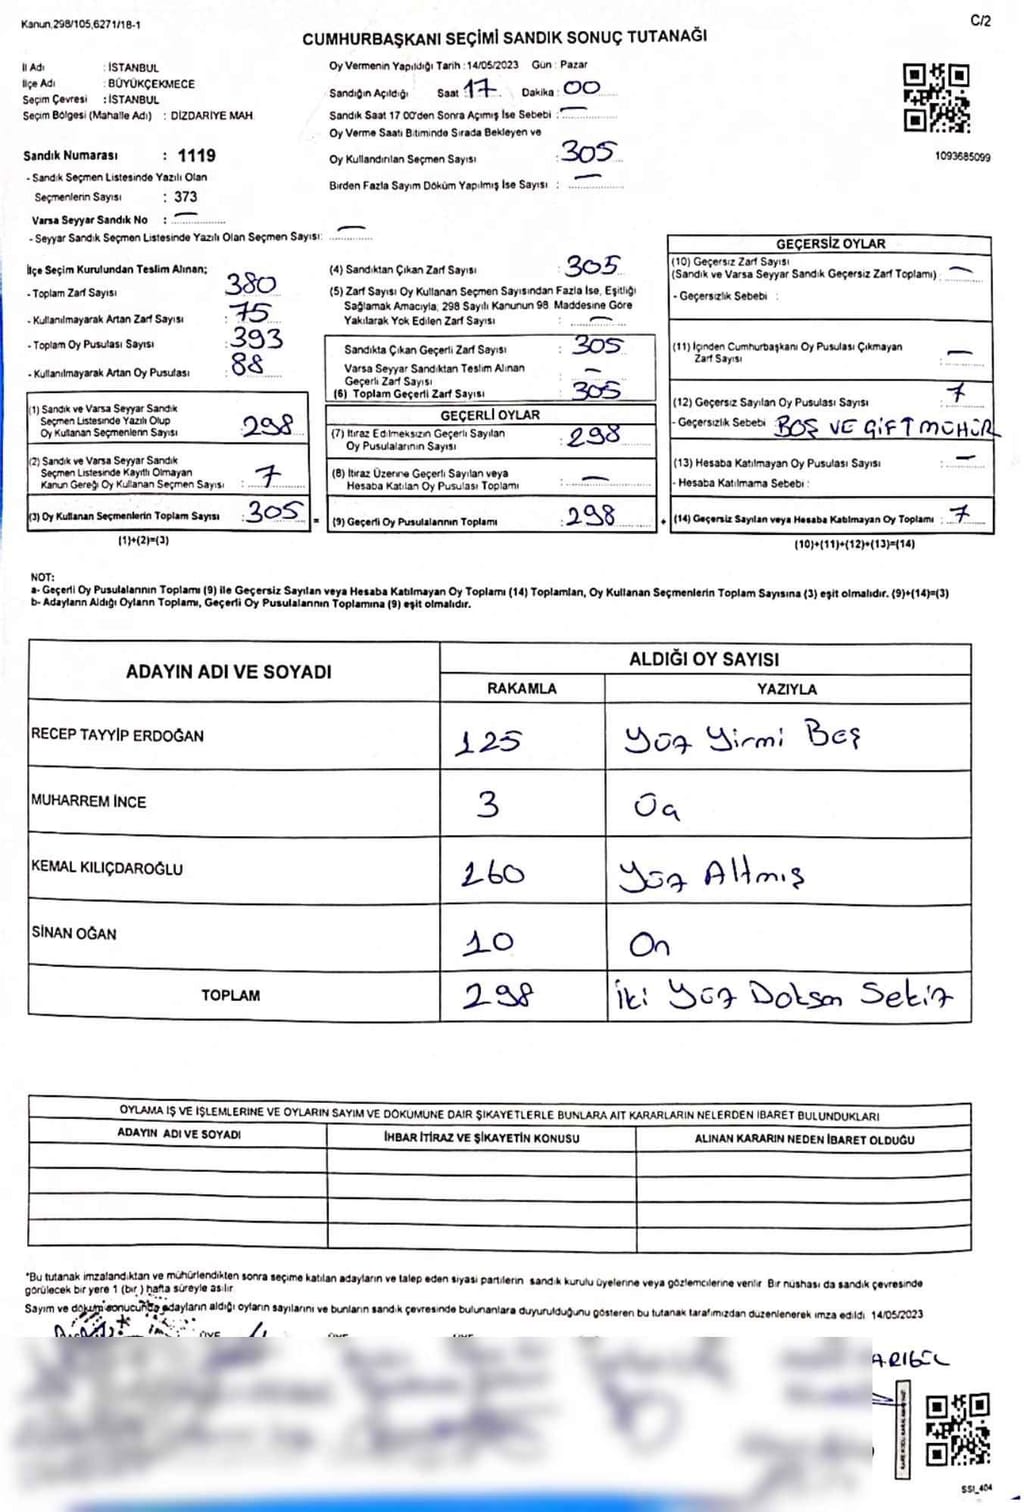 Kanun,298/105,6271/18-1
C/2
CUMHURBAŞKANI SEÇİMİ SANDIK SONUÇ TUTANAĞI
İl Adı : İSTANBUL
İlçe Adı : BÜYÜKÇEKMECE
Seçim Çevresi : İSTANBUL
Seçim Bölgesi (Mahalle Adı) : DİZDARİYE MAH
Oy Vermenin Yapıldığı Tarih :14/05/2023 Gün : Pazar
Sandığın Açıldığı Saat 17 Dakika : 00
Sandık Saat 17 00'den Sonra Açımış İse Sebebi : —
Oy Verme Saati Bitiminde Sırada Bekleyen ve
Oy Kullandırılan Seçmen Sayısı : 305
Birden Fazla Sayım Döküm Yapılmış İse Sayısı : —
1093685099
Sandık Numarası : 1119
- Sandık Seçmen Listesinde Yazılı Olan
Seçmenlerin Sayısı : 373
Varsa Seyyar Sandık No : —
- Seyyar Sandık Seçmen Listesinde Yazılı Olan Seçmen Sayısı: —
İlçe Seçim Kurulundan Teslim Alınan;
- Toplam Zarf Sayısı : 380
- Kullanılmayarak Artan Zarf Sayısı : 75
- Toplam Oy Pusulası Sayısı : 393
- Kullanılmayarak Artan Oy Pusulası : 88
(1) Sandık ve Varsa Seyyar Sandık
Seçmen Listesinde Yazılı Olup
Oy Kullanan Seçmenlerin Sayısı : 298
(2) Sandık ve Varsa Seyyar Sandık
Seçmen Listesinde Kayıtlı Olmayan
Kanun Gereği Oy Kullanan Seçmen Sayısı : 7
(3) Oy Kullanan Seçmenlerin Toplam Sayısı : 305 =
(1)+(2)=(3)
(4) Sandıktan Çıkan Zarf Sayısı : 305
(5) Zarf Sayısı Oy Kullanan Seçmen Sayısından Fazla İse, Eşitliği
Sağlamak Amacıyla, 298 Sayılı Kanunun 98 Maddesine Göre
Yakılarak Yok Edilen Zarf Sayısı : —
Sandıkta Çıkan Geçerli Zarf Sayısı : 305
Varsa Seyyar Sandıktan Teslim Alınan
Geçerli Zarf Sayısı : —
(6) Toplam Geçerli Zarf Sayısı : 305
GEÇERLİ OYLAR
(7) İtiraz Edilmeksizin Geçerli Sayılan
Oy Pusulalarının Sayısı : 298
(8) İtiraz Üzerine Geçerli Sayılan veya
Hesaba Katılan Oy Pusulası Toplamı : —
(9) Geçerli Oy Pusulalarının Toplamı : 298 +
GEÇERSİZ OYLAR
(10) Geçersiz Zarf Sayısı
(Sandık ve Varsa Seyyar Sandık Geçersiz Zarf Toplamı) : —
- Geçersizlik Sebebi :
(11) İçinden Cumhurbaşkanı Oy Pusulası Çıkmayan
Zarf Sayısı : —
(12) Geçersiz Sayılan Oy Pusulası Sayısı : 7
- Geçersizlik Sebebi : BOŞ VE ÇİFT MÜHÜR
(13) Hesaba Katılmayan Oy Pusulası Sayısı : —
- Hesaba Katılmama Sebebi :
(14) Geçersiz Sayılan veya Hesaba Katılmayan Oy Toplamı : 7
(10)+(11)+(12)+(13)=(14)
NOT:
a- Geçerli Oy Pusulalarının Toplamı (9) ile Geçersiz Sayılan veya Hesaba Katılmayan Oy Toplamı (14) Toplamları, Oy Kullanan Seçmenlerin Toplam Sayısına (3) eşit olmalıdır. (9)+(14)=(3)
b- Adayların Aldığı Oyların Toplamı, Geçerli Oy Pusulalarının Toplamına (9) eşit olmalıdır.
ADAYIN ADI VE SOYADI ALDIĞI OY SAYISI
RAKAMLA YAZIYLA
RECEP TAYYİP ERDOĞAN 125 Yüz Yirmi Beş
MUHARREM İNCE 3 Üç
KEMAL KILIÇDAROĞLU 160 Yüz Altmış
SİNAN OĞAN 10 On
TOPLAM 298 İki Yüz Doksan Sekiz
OYLAMA İŞ VE İŞLEMLERİNE VE OYLARIN SAYIM VE DÖKÜMÜNE DAİR ŞİKAYETLERLE BUNLARA AİT KARARLARIN NELERDEN İBARET BULUNDUKLARI
ADAYIN ADI VE SOYADI İHBAR İTİRAZ VE ŞİKAYETİN KONUSU ALINAN KARARIN NEDEN İBARET OLDUĞU
*Bu tutanak imzalandıktan ve mühürlendikten sonra seçime katılan adayların ve talep eden siyasi partilerin sandık kurulu üyelerine veya gözlemcilerine verilir. Bir nüshası da sandık çevresinde
görülecek bir yere 1 (bir ) hafta süreyle asılır
Sayım ve döküm sonucunda adayların aldığı oyların sayılarını ve bunların sandık çevresinde bulunanlara duyurulduğunu gösteren bu tutanak tarafımızdan düzenlenerek imza edildi 14/05/2023
SSI_404